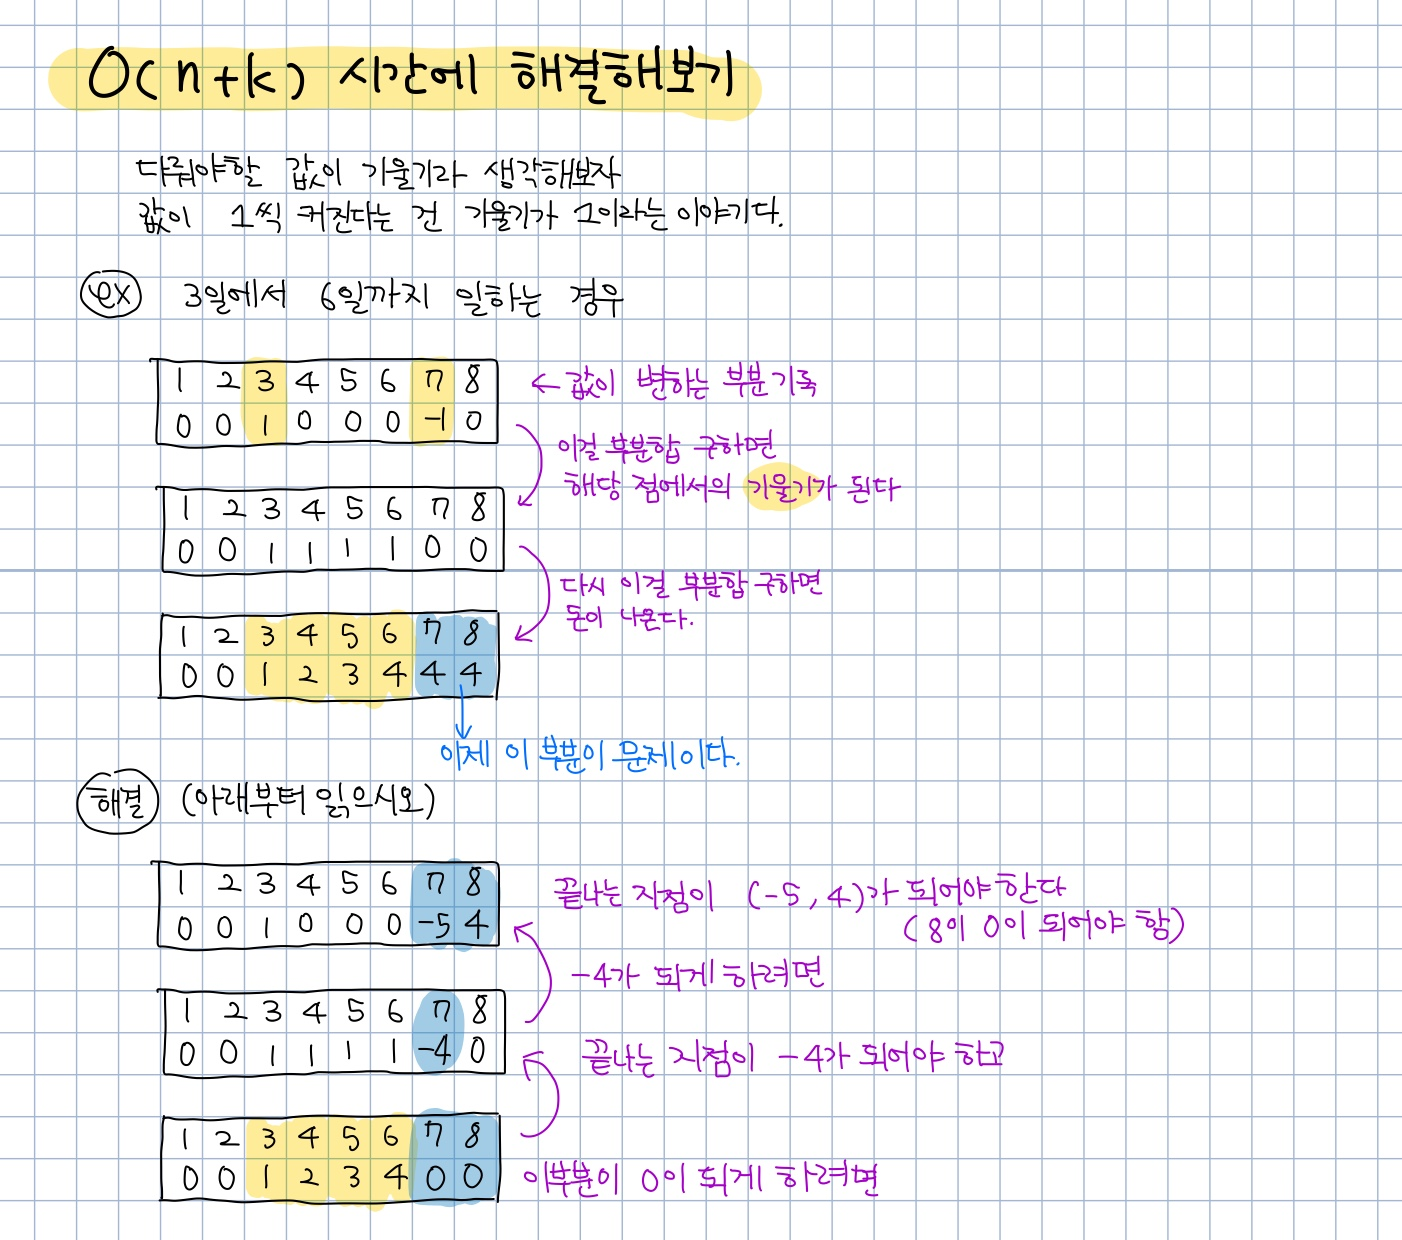 O(n+k) 시간에 해결해보기
다뤄야할 값이 기울기라 생각해보자
값이 1씩 커진다는 건 기울기가 1이라는 이야기다.
ex 3일에서 6일까지 일하는 경우
1 2 3 4 5 6 7 8
0 0 1 0 0 0 -1 0
← 값이 변하는 부분 기록
이걸 부분합 구하면
해당 점에서의 기울기가 된다
1 2 3 4 5 6 7 8
0 0 1 1 1 1 0 0
다시 이걸 부분합 구하면
돈이 나온다.
1 2 3 4 5 6 7 8
0 0 1 2 3 4 4 4
이제 이 부분이 문제이다.
해결 (아래부터 읽으시오)
1 2 3 4 5 6 7 8
0 0 1 0 0 0 -5 4
끝나는 지점이 (-5, 4)가 되어야 한다
(8이 0이 되어야 함)
-4가 되게 하려면
1 2 3 4 5 6 7 8
0 0 1 1 1 1 -4 0
끝나는 지점이 -4가 되어야 하고
1 2 3 4 5 6 7 8
0 0 1 2 3 4 0 0
이부분이 0이 되게 하려면